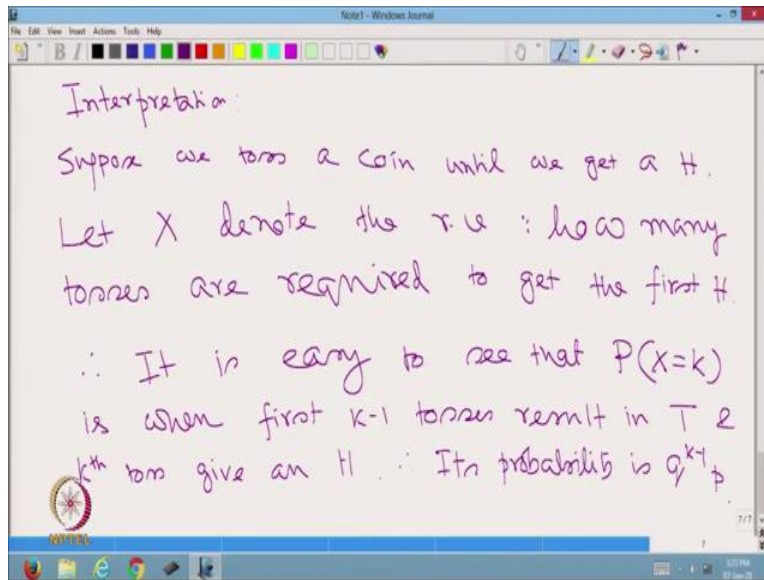 Note1 - Windows Journal
File Edit View Insert Actions Tools Help
Interpretation:
Suppose we toss a coin until we get a H.
Let X denote the r.v : how many
tosses are required to get the first H.
∴ It is easy to see that P(X=k)
is when first k-1 tosses result in T &
k^th toss give an H. ∴ Its probability is q^{k-1} p.
NPTEL
7/7
7
3:23 PM